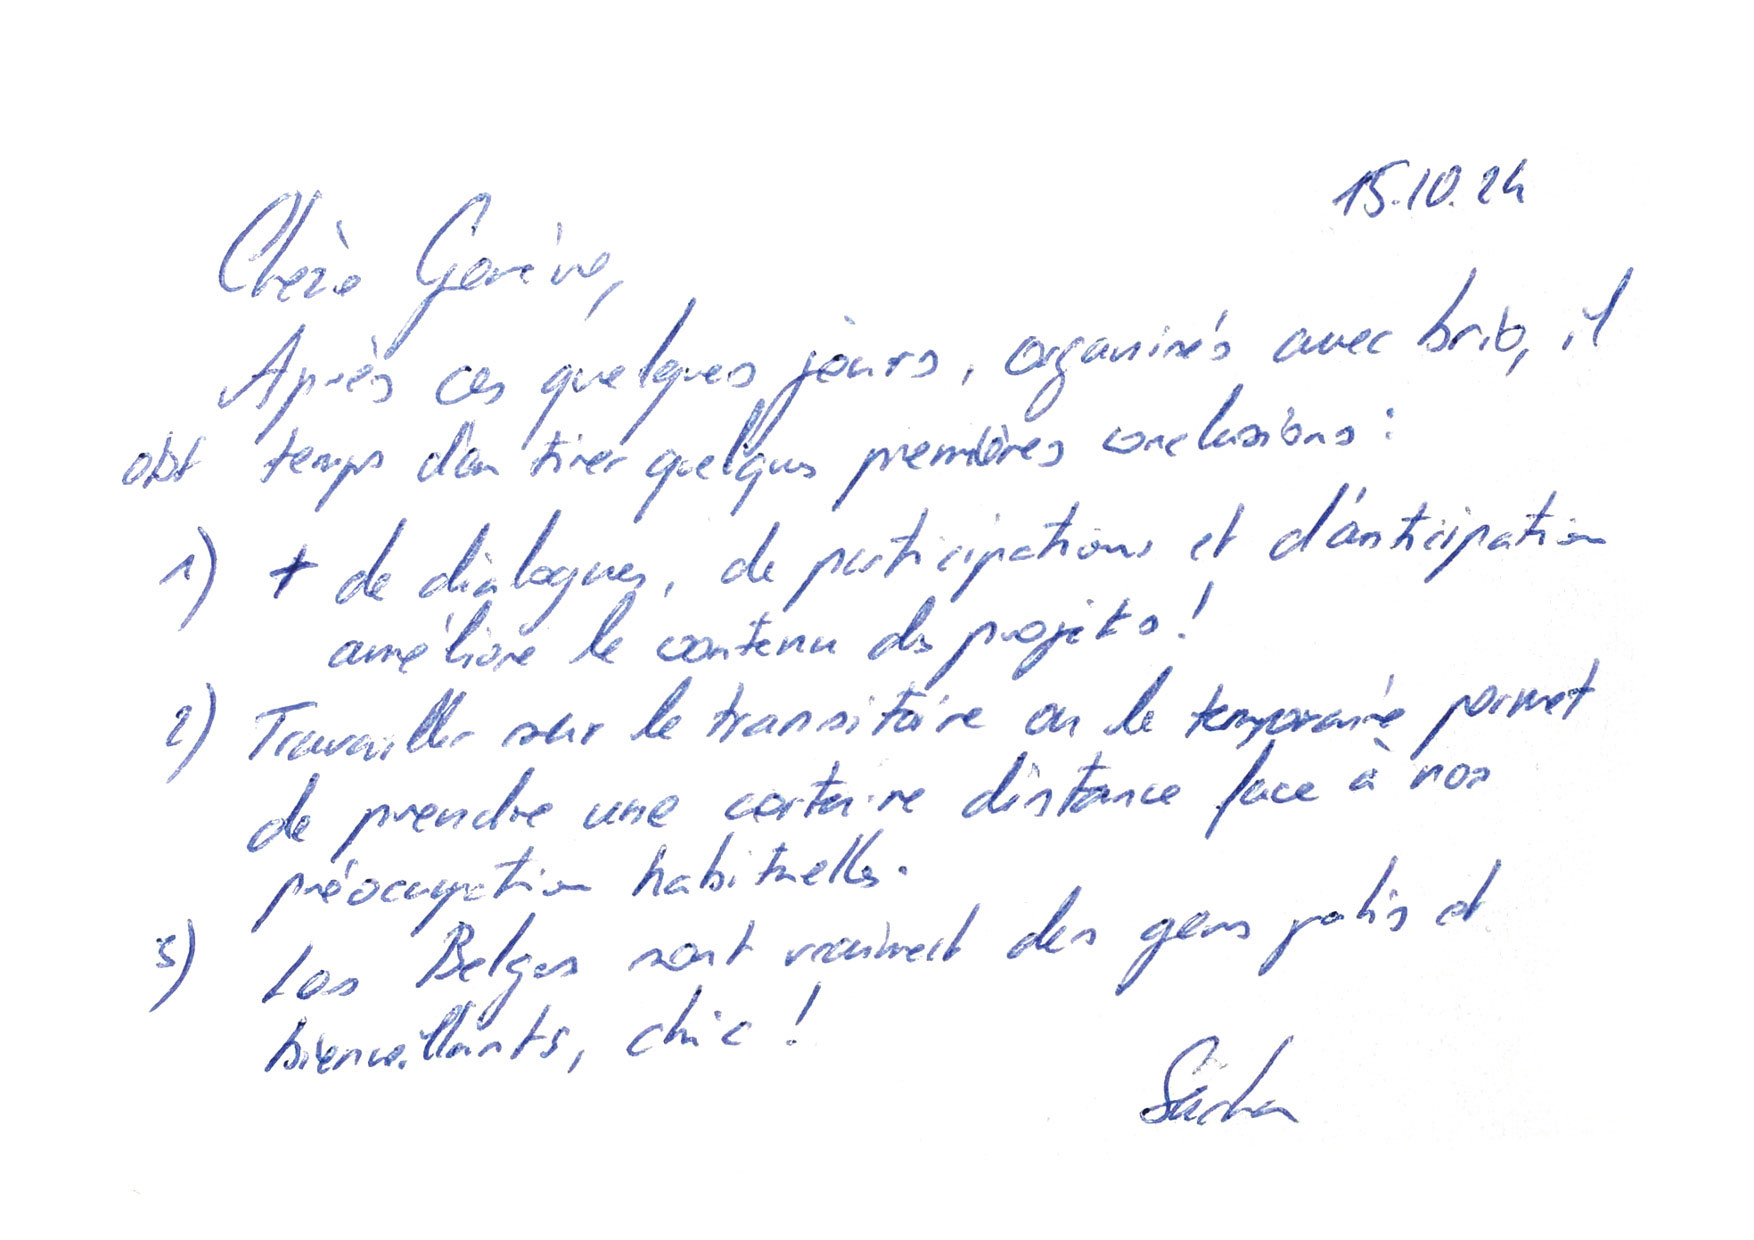 15.10.24
Chère Genève,
Après ces quelques jours, organisés avec brio, il
est temps d'en tirer quelques premières conclusions :
1) + de dialogues, de participations et d'anticipation
améliore le contenu des projets !
2) Travailler sur le transitoire ou le temporaire permet
de prendre une certaine distance face à nos
préocupation habituelles.
3) Les Belges sont vraiment des gens polis et
bienveillants, chic !
Sacha